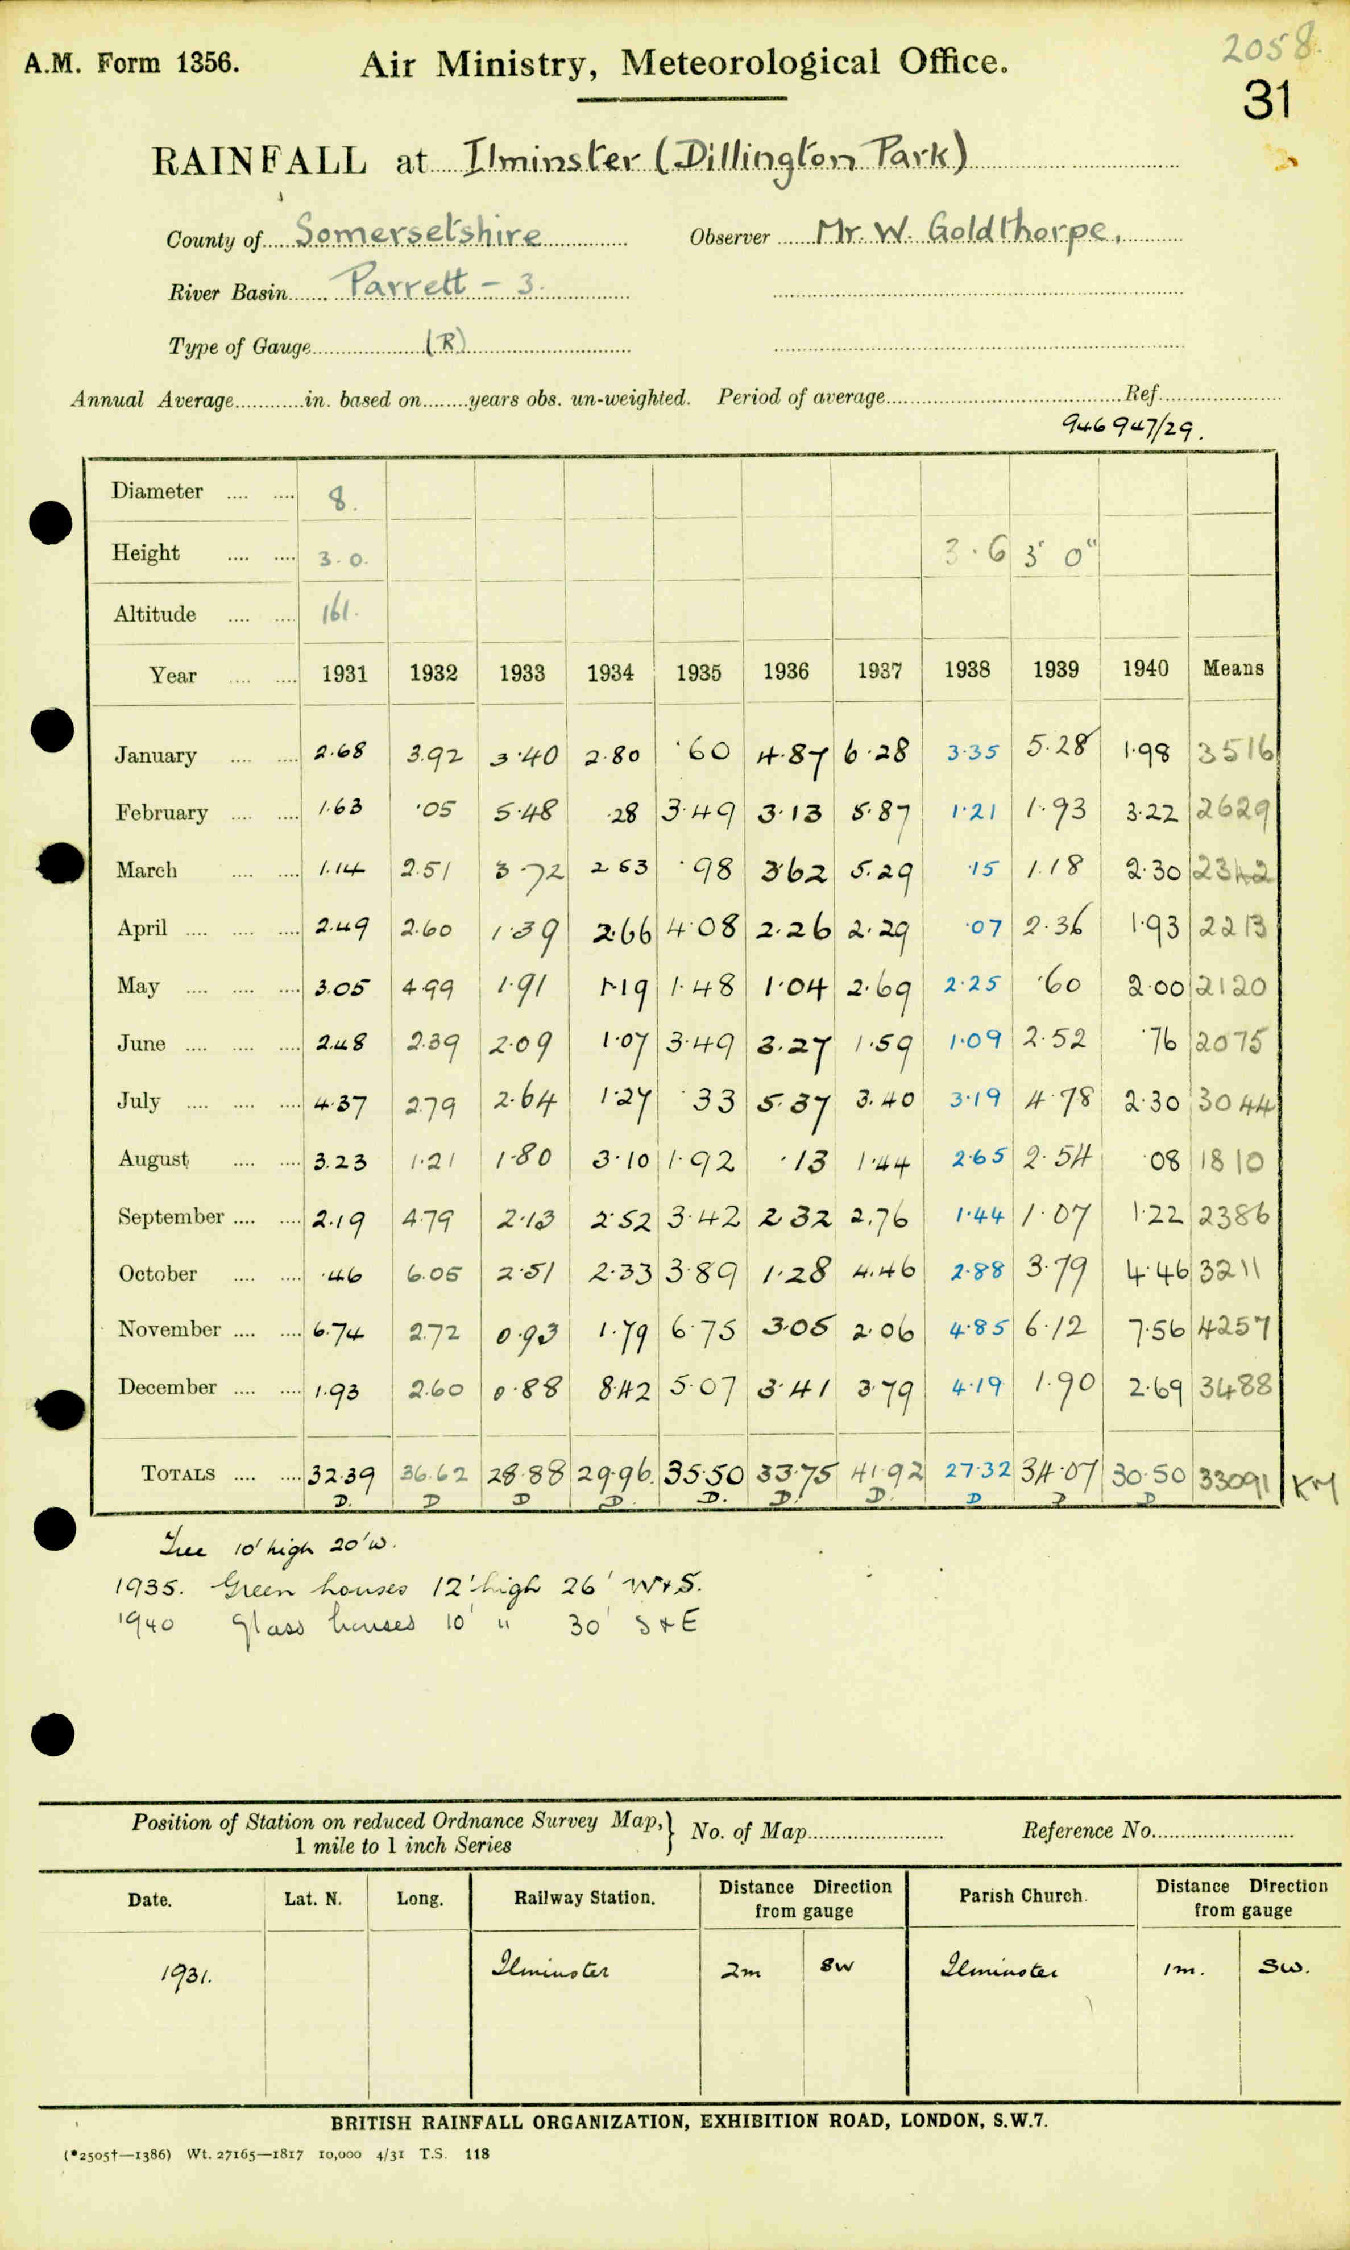 2058.
A.M. Form 1356. Air Ministry, Meteorological Office.
31
RAINFALL at Ilminster (Dillington Park)
County of Somersetshire Observer Mr. W. Goldthorpe.
River Basin Parrett - 3.
Type of Gauge (R)
Annual Average in. based on years obs. un-weighted. Period of average Ref.
946 947/29.
Diameter 8.
Height 3.0. 3.6 3' 0"
Altitude 161.
Year 1931 1932 1933 1934 1935 1936 1937 1938 1939 1940 Means
January 2.68 3.92 3.40 2.80 .60 4.87 6.28 3.35 5.28 1.98 3516
February 1.63 .05 5.48 .28 3.49 3.13 5.87 1.21 1.93 3.22 2629
March 1.14 2.51 3.72 2.53 .98 3.62 5.29 .15 1.18 2.30 2342
April 2.49 2.60 1.39 2.66 4.08 2.26 2.29 .07 2.36 1.93 2213
May 3.05 4.99 1.91 1.19 1.48 1.04 2.69 2.25 .60 2.00 2120
June 2.48 2.39 2.09 1.07 3.49 3.27 1.59 1.09 2.52 .76 2075
July 4.37 2.79 2.64 1.27 .33 5.37 3.40 3.19 4.78 2.30 3044
August 3.23 1.21 1.80 3.10 1.92 .13 1.44 2.65 2.54 .08 1810
September 2.19 4.79 2.13 2.52 3.42 2.32 2.76 1.44 1.07 1.22 2386
October .46 6.05 2.51 2.33 3.89 1.28 4.46 2.88 3.79 4.46 3211
November 6.74 2.72 0.93 1.79 6.75 3.05 2.06 4.85 6.12 7.56 4257
December 1.93 2.60 0.88 8.42 5.07 3.41 3.79 4.19 1.90 2.69 3488
TOTALS 32.39 36.62 28.88 29.96. 35.50 33.75 41.92 27.32 34.07 30.50 33091 KM
D. D D D. D. D. D. D D D
Tree 10' high 20' W.
1935. Green houses 12' high 26' W+S.
1940 Glass houses 10' " 30' S+E
Position of Station on reduced Ordnance Survey Map,} No. of Map Reference No.
1 mile to 1 inch Series
Date. Lat. N. Long. Railway Station. Distance Direction from gauge Parish Church. Distance Direction from gauge
1931. Ilminster 2m SW Ilminster 1m. SW.
BRITISH RAINFALL ORGANIZATION, EXHIBITION ROAD, LONDON, S.W.7.
(*2505†—1386) Wt. 27165—1817 10,000 4/31 T.S. 118